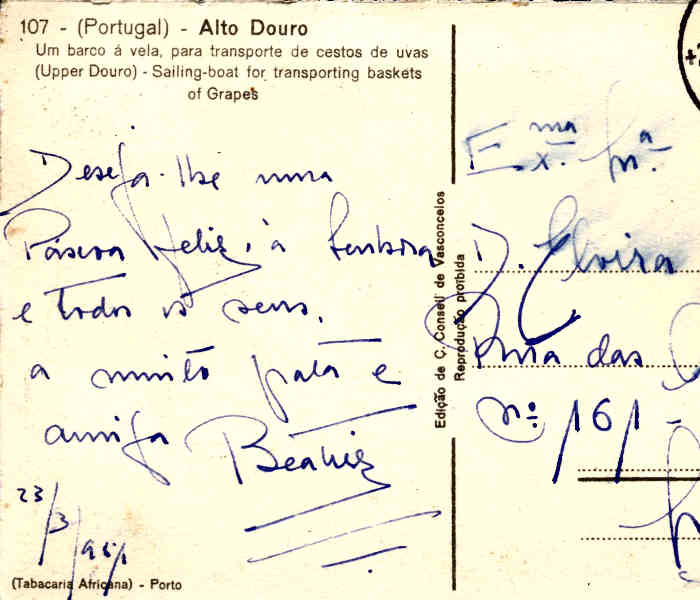 107 - (Portugal) - Alto Douro
Um barco á vela, para transporte de cestos de uvas
(Upper Douro) - Sailing-boat for transporting baskets
of Grapes
Deseja-lhe uma
Páscoa Feliz, à Senhora
e todos os seus,
a muito grata e
amiga Beatriz
23/3/951
(Tabacaria Africana) - Porto
Edição de Ç. Conseil de Vasconcelos
Reprodução proibida
Exma. Snra.
D. Elvira
Rua das
Nº 161 -